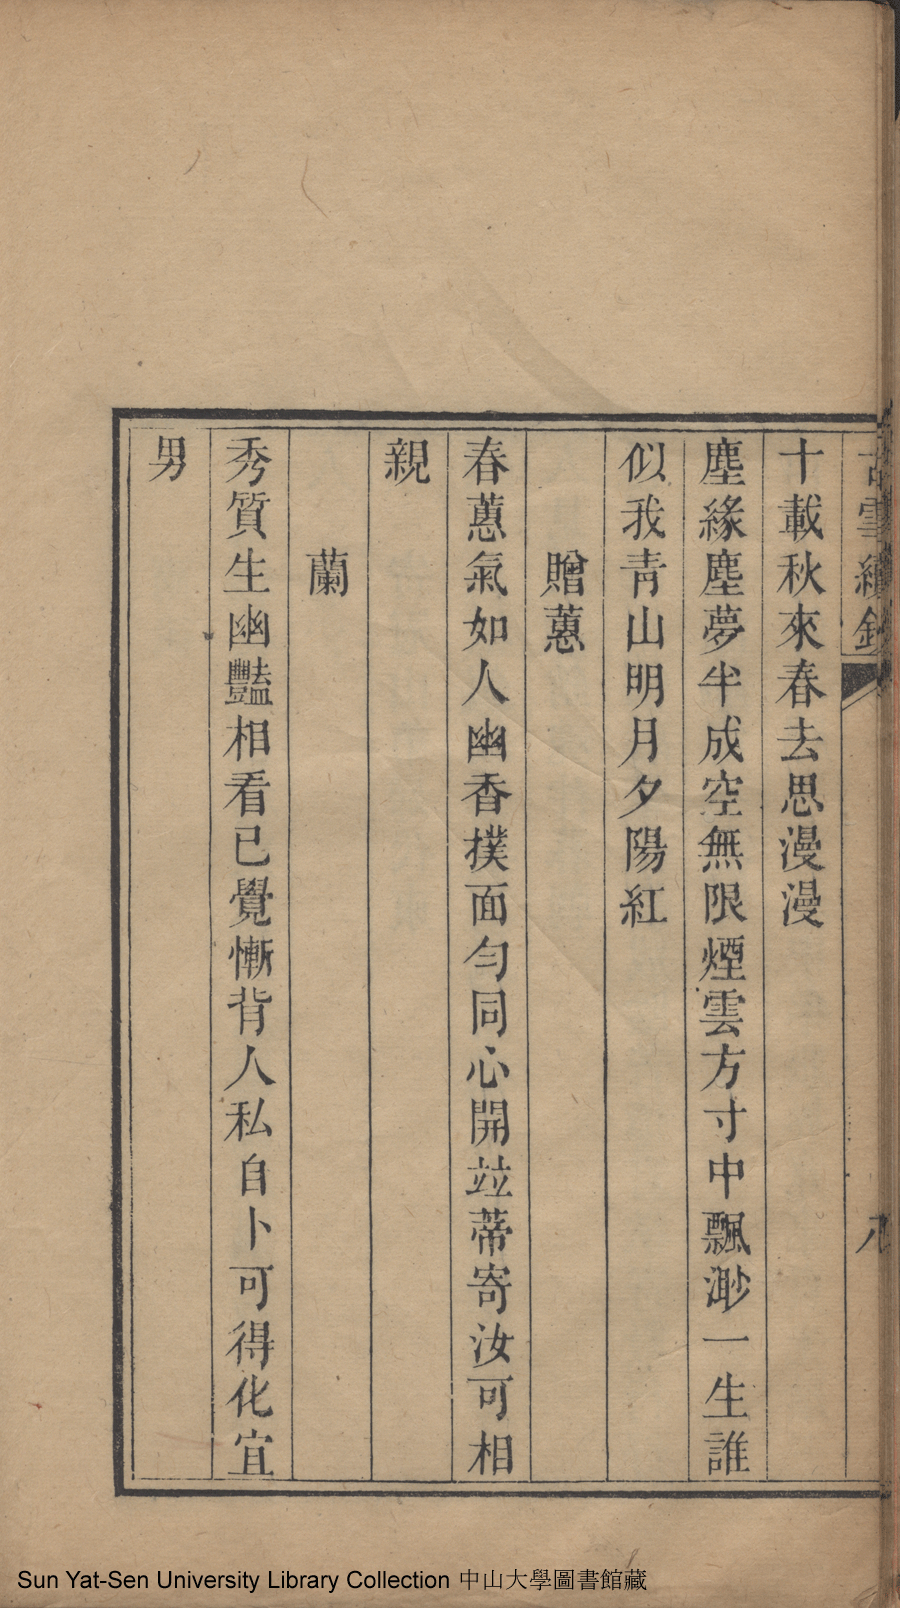 古雪續鈔
八
十載秋來春去思漫漫
塵緣塵夢半成空無限煙雲方寸中飄渺一生誰
似我青山明月夕陽紅
贈蕙
春蕙氣如人幽香撲面勻同心開竝蒂寄汝可相
親
蘭
秀質生幽豔相看已覺慚背人私自卜可得化宜
男
Sun Yat-Sen University Library Collection 中山大學圖書館藏